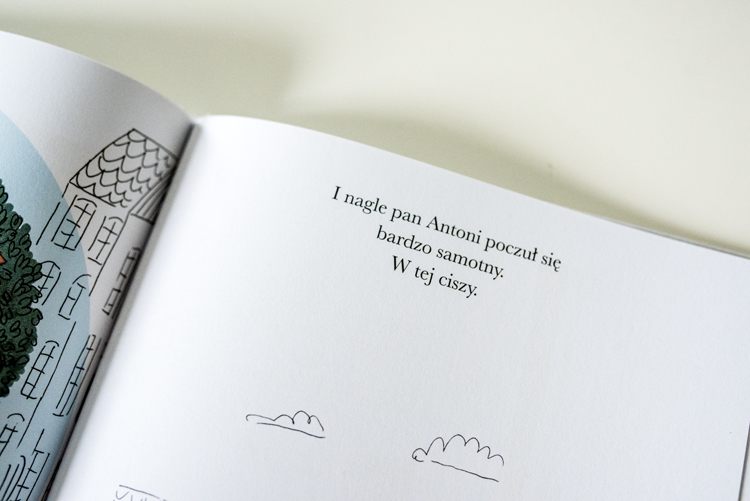 I nagle pan Antoni poczuł się
bardzo samotny.
W tej ciszy.